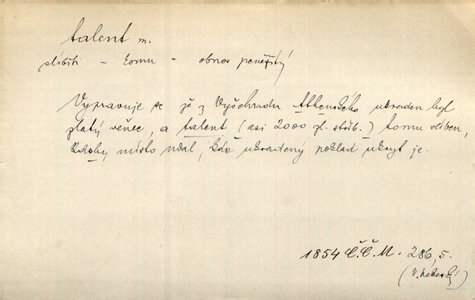 talent m.
slíbiti - komu - obnos peněžitý
Vypravuje se že z Vyšehradu Athenského ukraden byl
zlatý věnec, a talent (asi 2000 zl. stříb.) tomu slíben,
kdoby místo udal, kde ukradený poklad ukryt je.
1854 Č.Č.M. 286, 5.
(V. Nebeský)